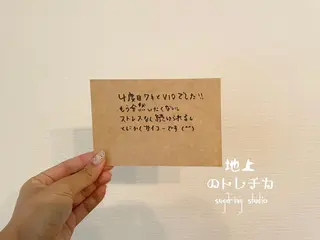 4度目ワキとVIOでした!!
もう全然いたくないし
ストレスなし続けられるし
サイコーです(^^)
地上
のトレチカ
sugaring studio